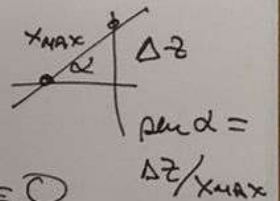 X MAX
α
ΔZ
sen α =
ΔZ/X MAX
= 0